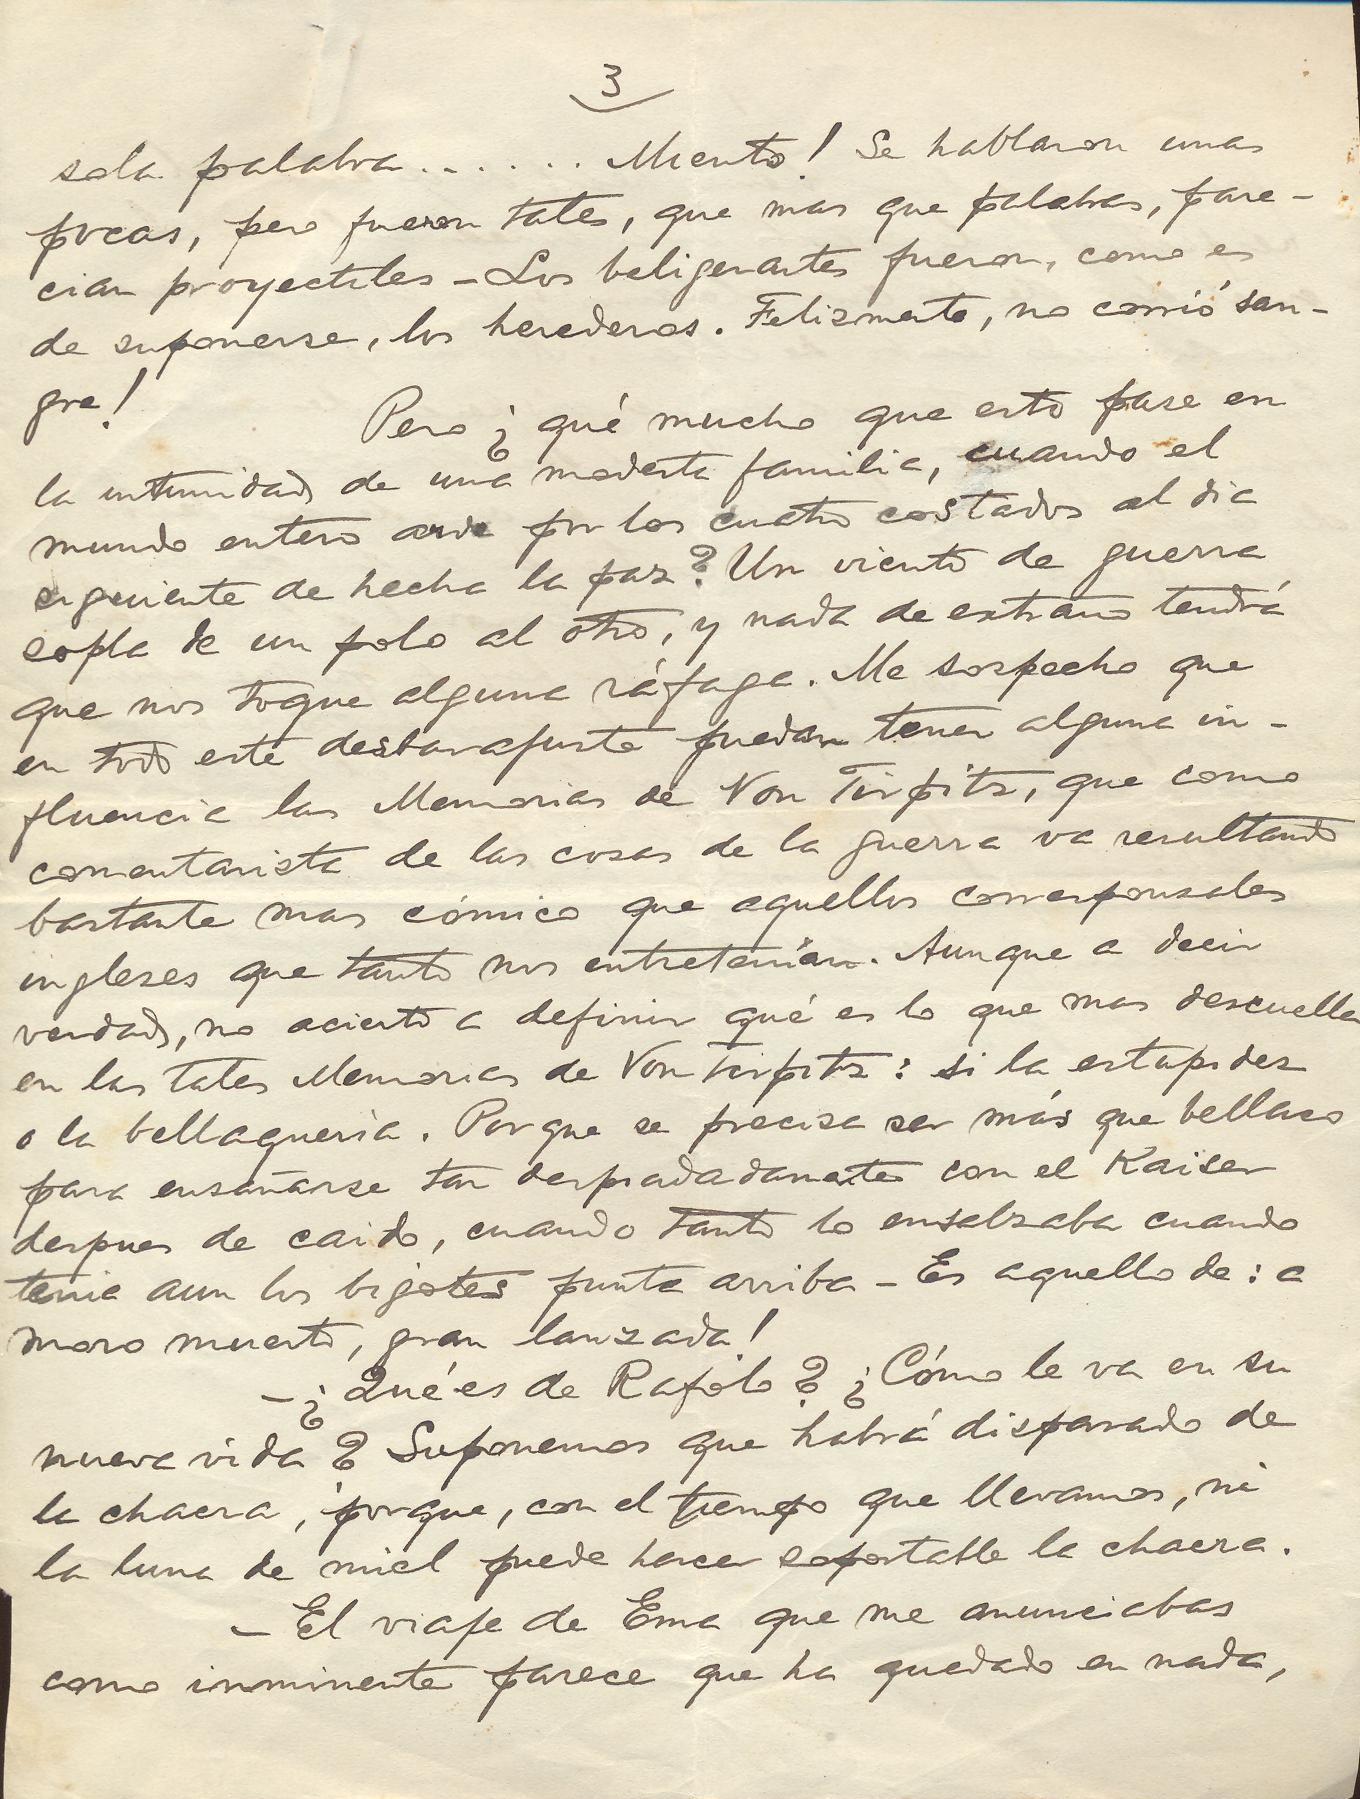 3
sola palabra....... Miento! Se hablaron unas
pocas, pero fueron tales, que mas que palabras, pare-
cian proyectiles - Los beligerantes fueron, como es
de suponerse, los herederos. Felizmente, no corrió san-
gre!
Pero ¿ qué mucho que esto pase en
la intimidad de una modesta familia, cuando el
mundo entero arde por los cuatro costados al dia
siguiente de hecha la paz? Un viento de guerra
sopla de un polo al otro, y nada de extraño tendrá
que nos toque alguna ráfaga. Me sospecho que
en todo este desbarajuste puedan tener alguna in-
fluencia las Memorias de Von Tirpitz, que como
comentarista de las cosas de la guerra va resultando
bastante mas cómico que aquellos corresponsales
ingleses que tanto nos entretenían. Aunque a decir
verdad, no acierto a definir qué es lo que mas descuella
en las tales Memorias de Von Tirpitz: si la estupidez
o la bellaqueria. Porque se precisa ser más que bellaco
para ensañarse tan despiadadamente con el Kaiser
despues de caido, cuando tanto lo ensalzaba cuando
tenia aun los bigotes punta arriba - Es aquello de: a
moro muerto, gran lanzada!
- ¿Qué es de Rafolo? ¿Cómo le va en su
nueva vida? Suponemos que habrá disparado de
la chacra, porque, con el tiempo que llevamos, ni
la luna de miel puede hacer soportable la chacra.
- El viaje de Ema que me anunciabas
como inminente parece que ha quedado en nada,